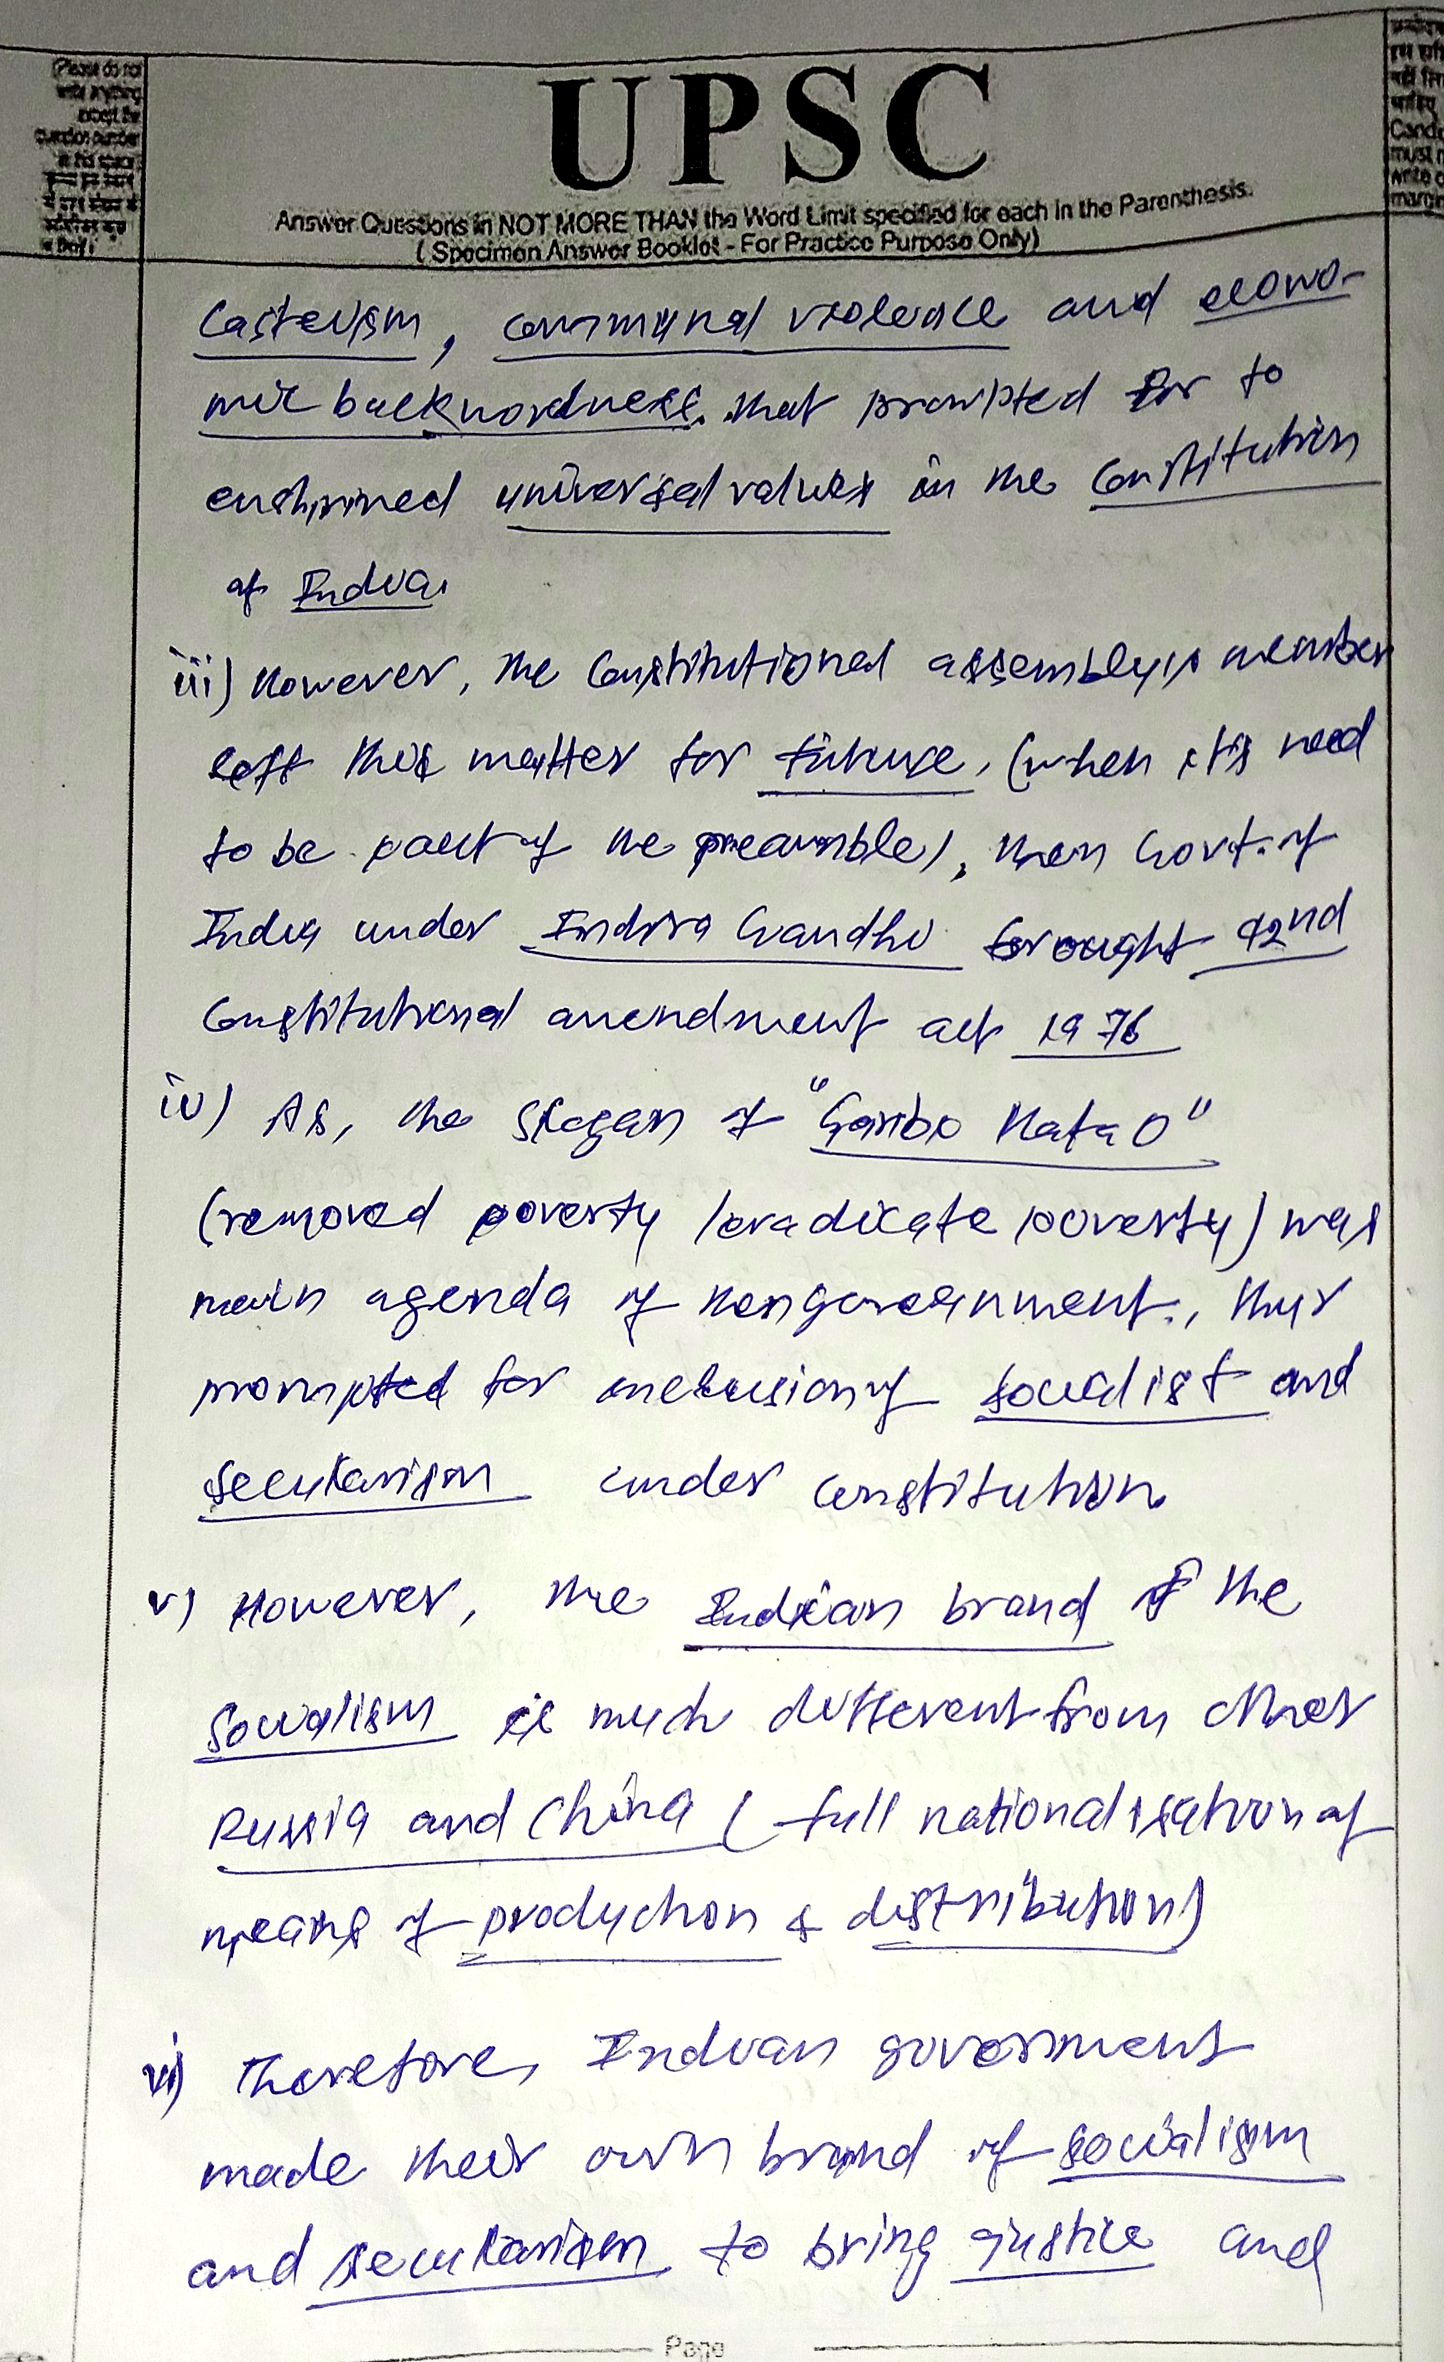 (Please do not
write anything
except the
question number
in this space
UPSC
Answer Questions in NOT MORE THAN the Word Limit specified for each in the Parenthesis.
( Specimen Answer Booklet - For Practice Purpose Only)
Candi
must n
write o
margin
Casteism, communal violence and econo-
mic backwordness. that prompted for to
enshrined universal values in the Constitution
of India.
iii) However, the Constitutional assembly's member
left this matter for future, (when its need
to be part of the preamble), then Govt. of
India under Indira Gandhi brought 42nd
Constitutional amendment act 1976
iv) As, the slogan of "Garibo Hatao"
(removed poverty /eradicate poverty) was
main agenda of then government., thus
prompted for inclusion of socialist and
secularism under constitution.
v) However, the Indian brand of the
Socialism is much different from other
Russia and China ( full nationalisation of
means of production & distribution)
vi) Therefore, Indian government
made their own brand of socialism
and secularism to bring justice and
Page